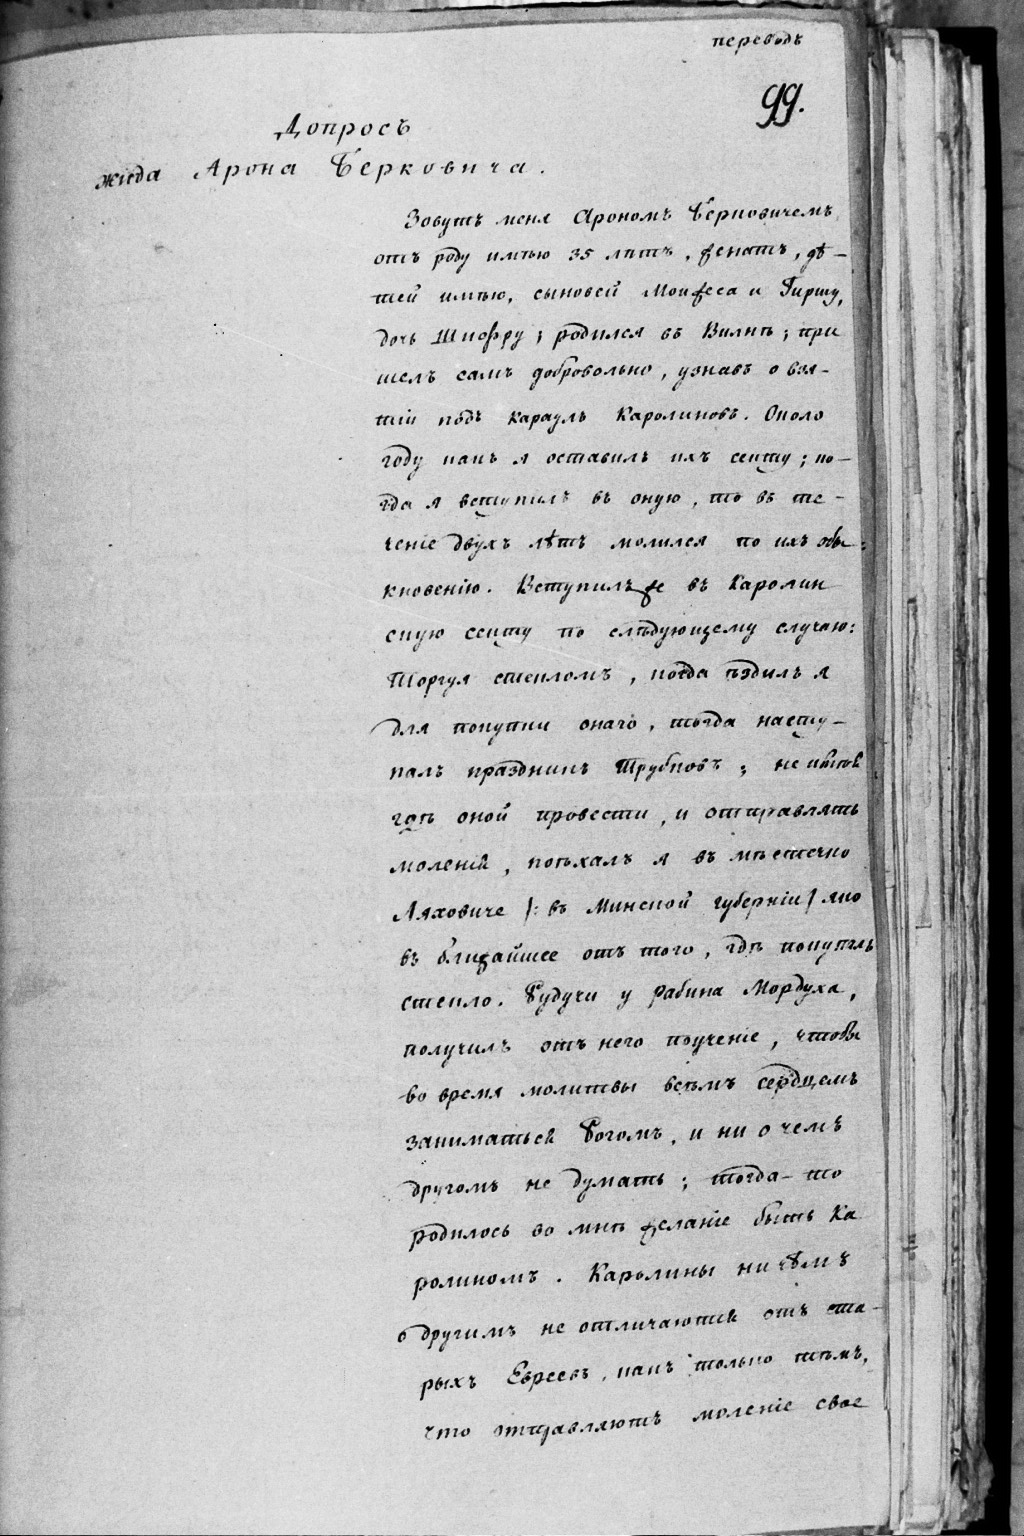 переводъ
99.
Допросъ
жида Арона Берковича.
Зовутъ меня Арономъ Берковичемъ
отъ роду имѣю 35 лѣтъ, женатъ, дѣ-
тей имѣю, сыновей Моижеса и Гиршу,
дочь Шифру; родился въ Вилнѣ; при
шелъ самъ добровольно, узнавъ о взя-
тіи подъ караулъ Каролиновъ. Около
году какъ я оставилъ ихъ секту; ко-
гда я вступилъ въ оную, то въ те-
ченіе двухъ лѣтъ молился по ихъ обы-
кновенію. Вступилъ же въ Каролин
скую секту по слѣдующему случаю:
Торгуя стекломъ, когда ѣздилъ я
для покупки онаго, тогда насту-
палъ праздникъ Трубковъ; не имѣя
гдѣ оной провести, и отправлять
моленій, поѣхалъ я въ мѣстечко
Ляховиче /: въ Минской губерніи / яко
въ ближайшее отъ того, гдѣ покупалъ
стекло. Будучи у рабина Мордуха,
получилъ отъ него поученіе, чтобы
во время молитвы всѣмъ сердцемъ
заниматься Богомъ, и ни о чемъ
другомъ не думать; тогда-то
родилось во мнѣ желаніе быть Ка
ролиномъ. Каролины ни чѣмъ
другимъ не отличаются отъ ста-
рыхъ Евреевъ, какъ только тѣмъ,
что отправляютъ моленіе свое